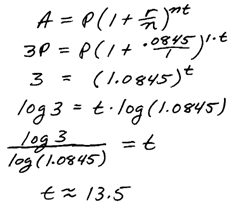 A = P(1 + r/n)^nt
3P = P(1 + .0845/1)^1·t
3 = (1.0845)^t
log 3 = t · log(1.0845)
log 3 / log(1.0845) = t
t ≈ 13.5